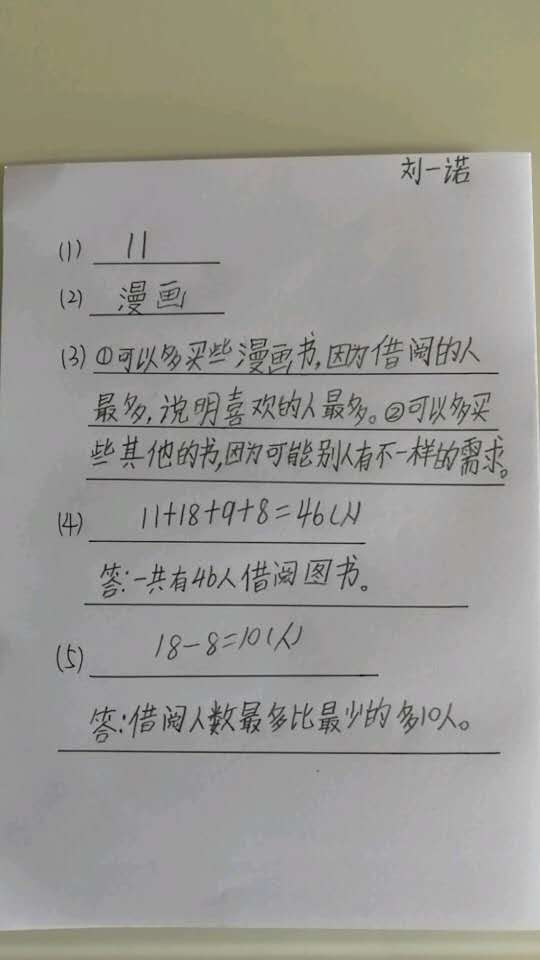 刘一诺
(1) 11
(2) 漫画
(3) ①可以多买些漫画书,因为借阅的人
最多,说明喜欢的人最多。②可以多买
些其他的书,因为可能别人有不一样的需求。
(4) 11+18+9+8=46(人)
答:一共有46人借阅图书。
(5) 18-8=10(人)
答:借阅人数最多比最少的多10人。